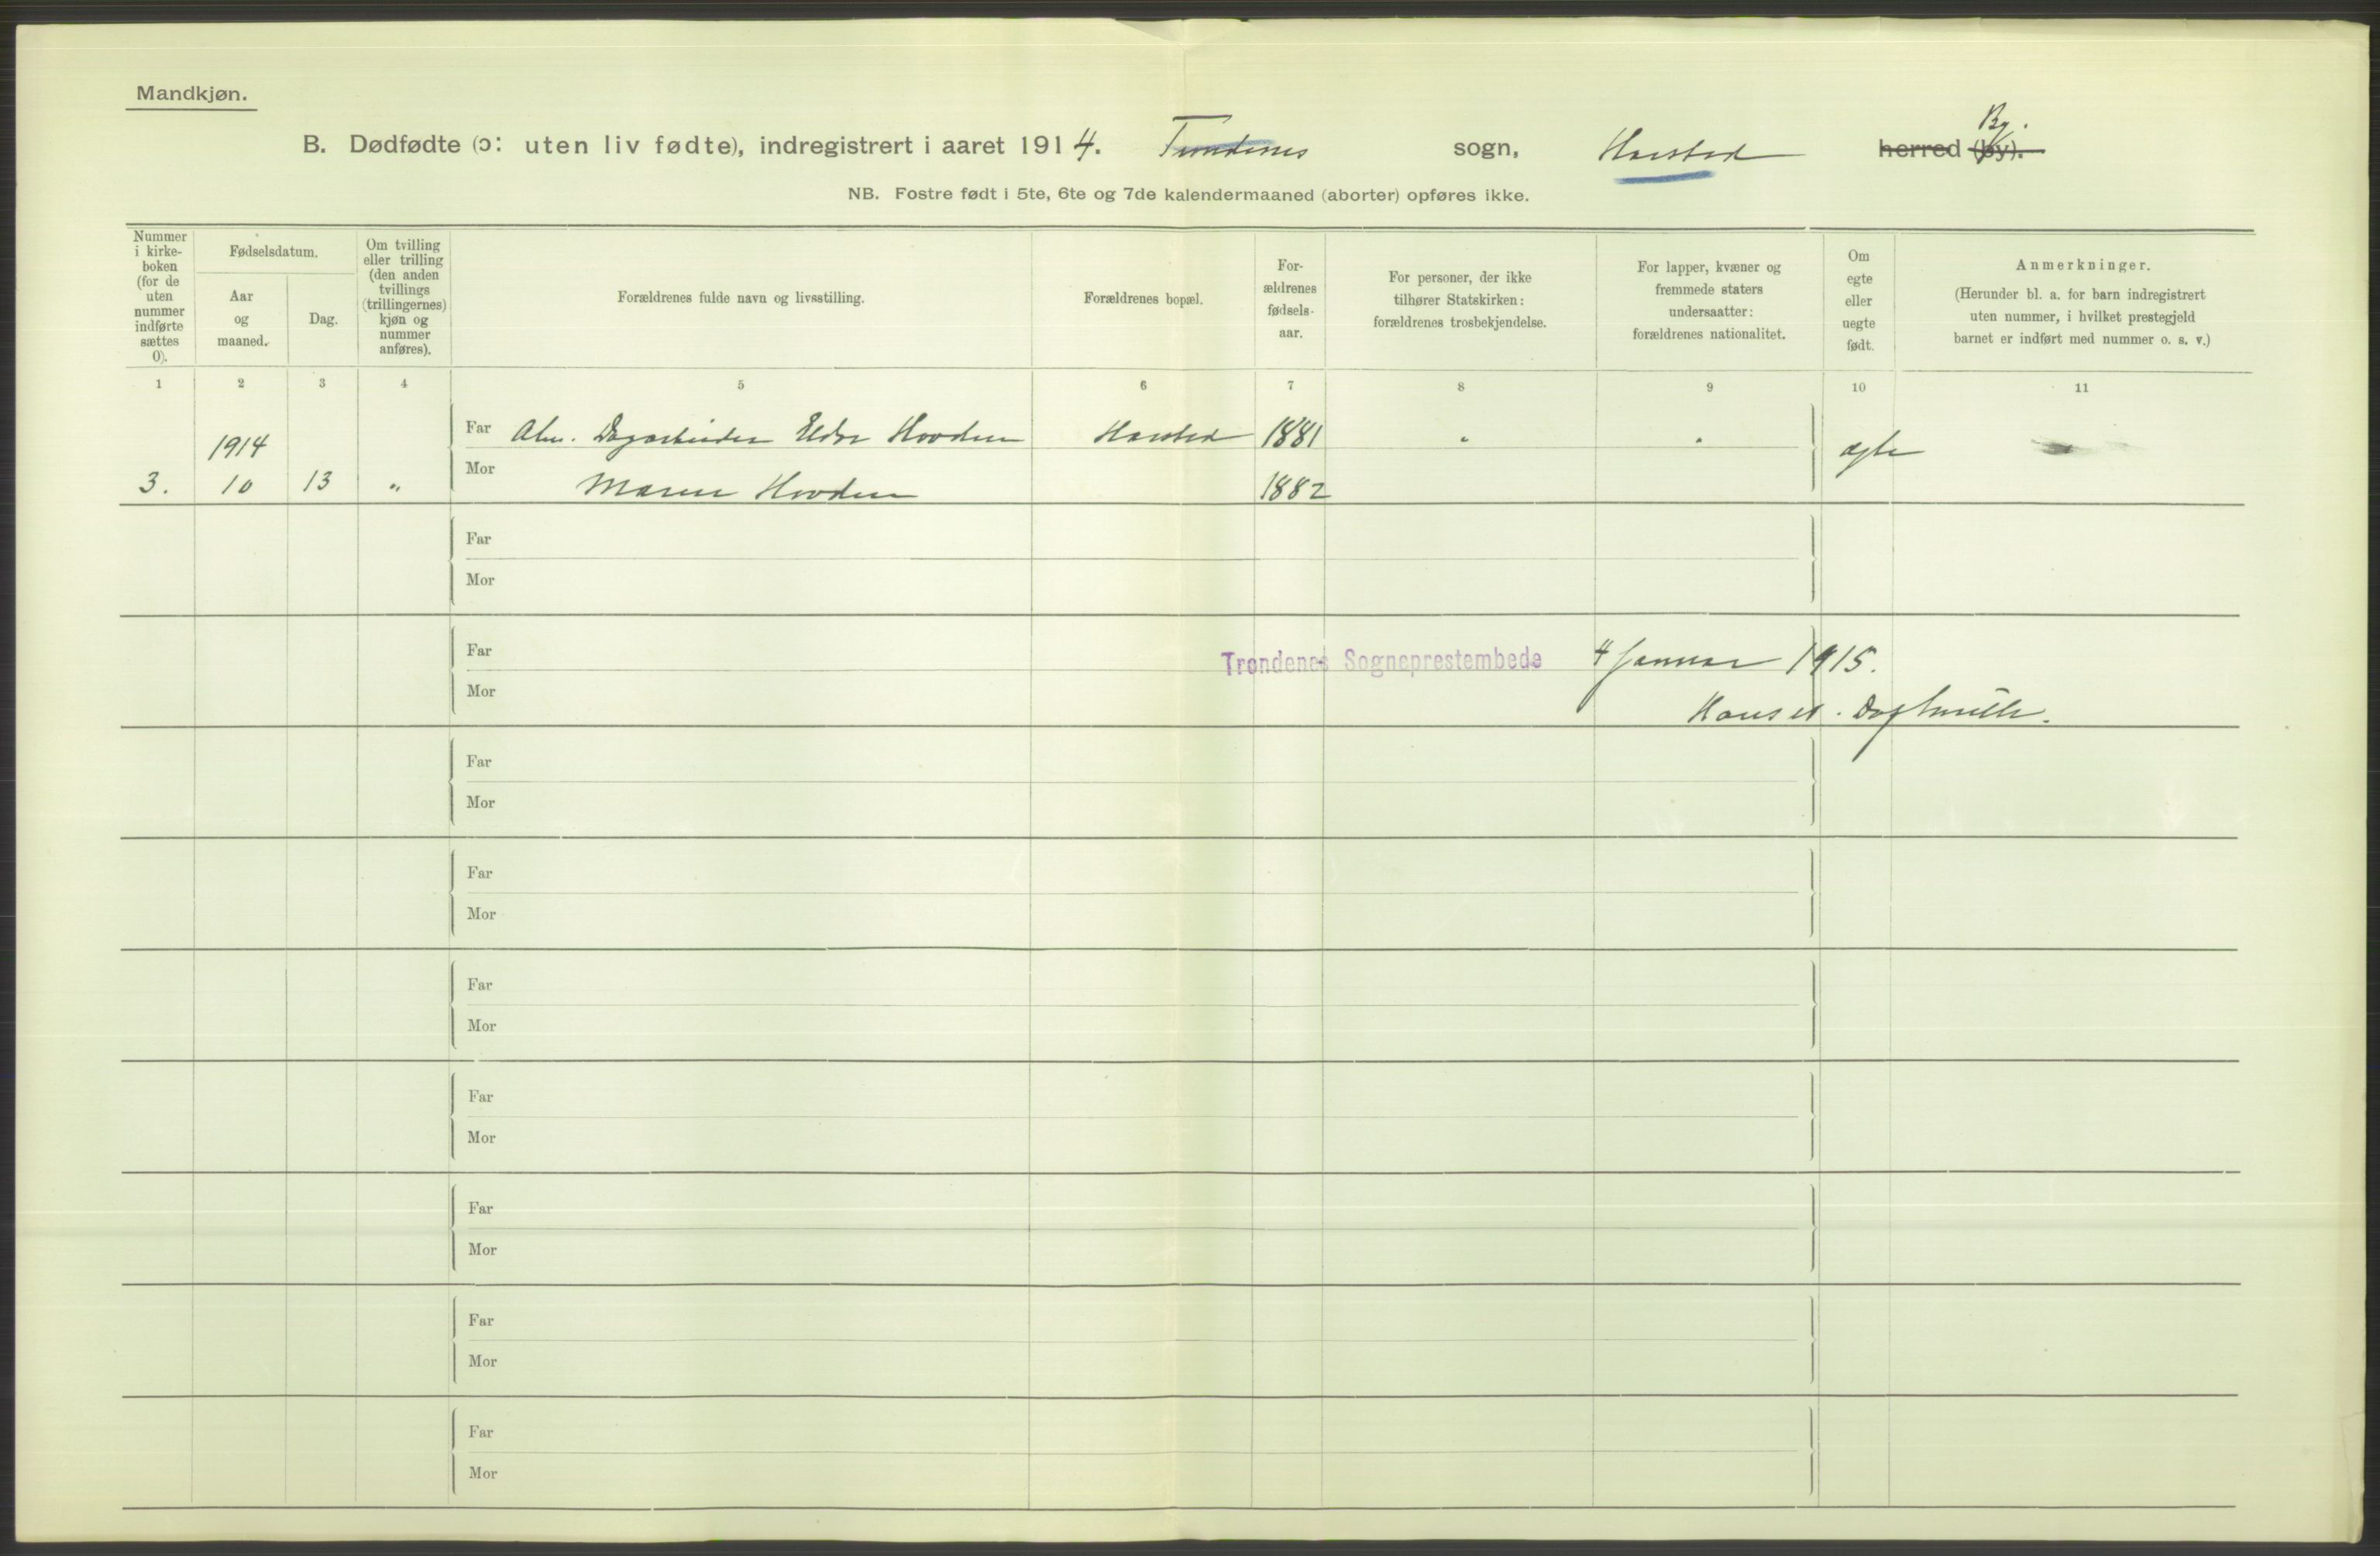 Mandkjøn.
B. Dødfødte (ɔ: uten liv fødte), indregistrert i aaret 1914. Trondenes sogn, Harstad herred (by). By.
NB. Fostre født i 5te, 6te og 7de kalendermaaned (aborter) opføres ikke.
Nummer
i kirke-
boken
(for de
uten
nummer
indførte
sættes
0).
Fødselsdatum.
Aar
og
maaned.
Dag.
Om tvilling
eller trilling
(den anden
tvillings
(trillingernes)
kjøn og
nummer
anføres).
Forældrenes fulde navn og livsstilling.
Forældrenes bopæl.
For-
ældrenes
fødsels-
aar.
For personer, der ikke
tilhører Statskirken:
forældrenes trosbekjendelse.
For lapper, kvæner og
fremmede staters
undersaatter:
forældrenes nationalitet.
Om
egte
eller
uegte
født.
Anmerkninger.
(Herunder bl. a. for barn indregistrert
uten nummer, i hvilket prestegjeld
barnet er indført med nummer o. s. v.)
1 2 3 4 5 6 7 8 9 10 11
1914
Far Alm. Dagarbeider Hovden Harstad 1881 " "
ægte
3. 10 13 "
Mor Maren Hovden 1882
Far
Mor
Far
Trondenes Sogneprestembede 4 januar 1915.
Mor
Far
Mor
Far
Mor
Far
Mor
Far
Mor
Far
Mor
Far
Mor
Far
Mor